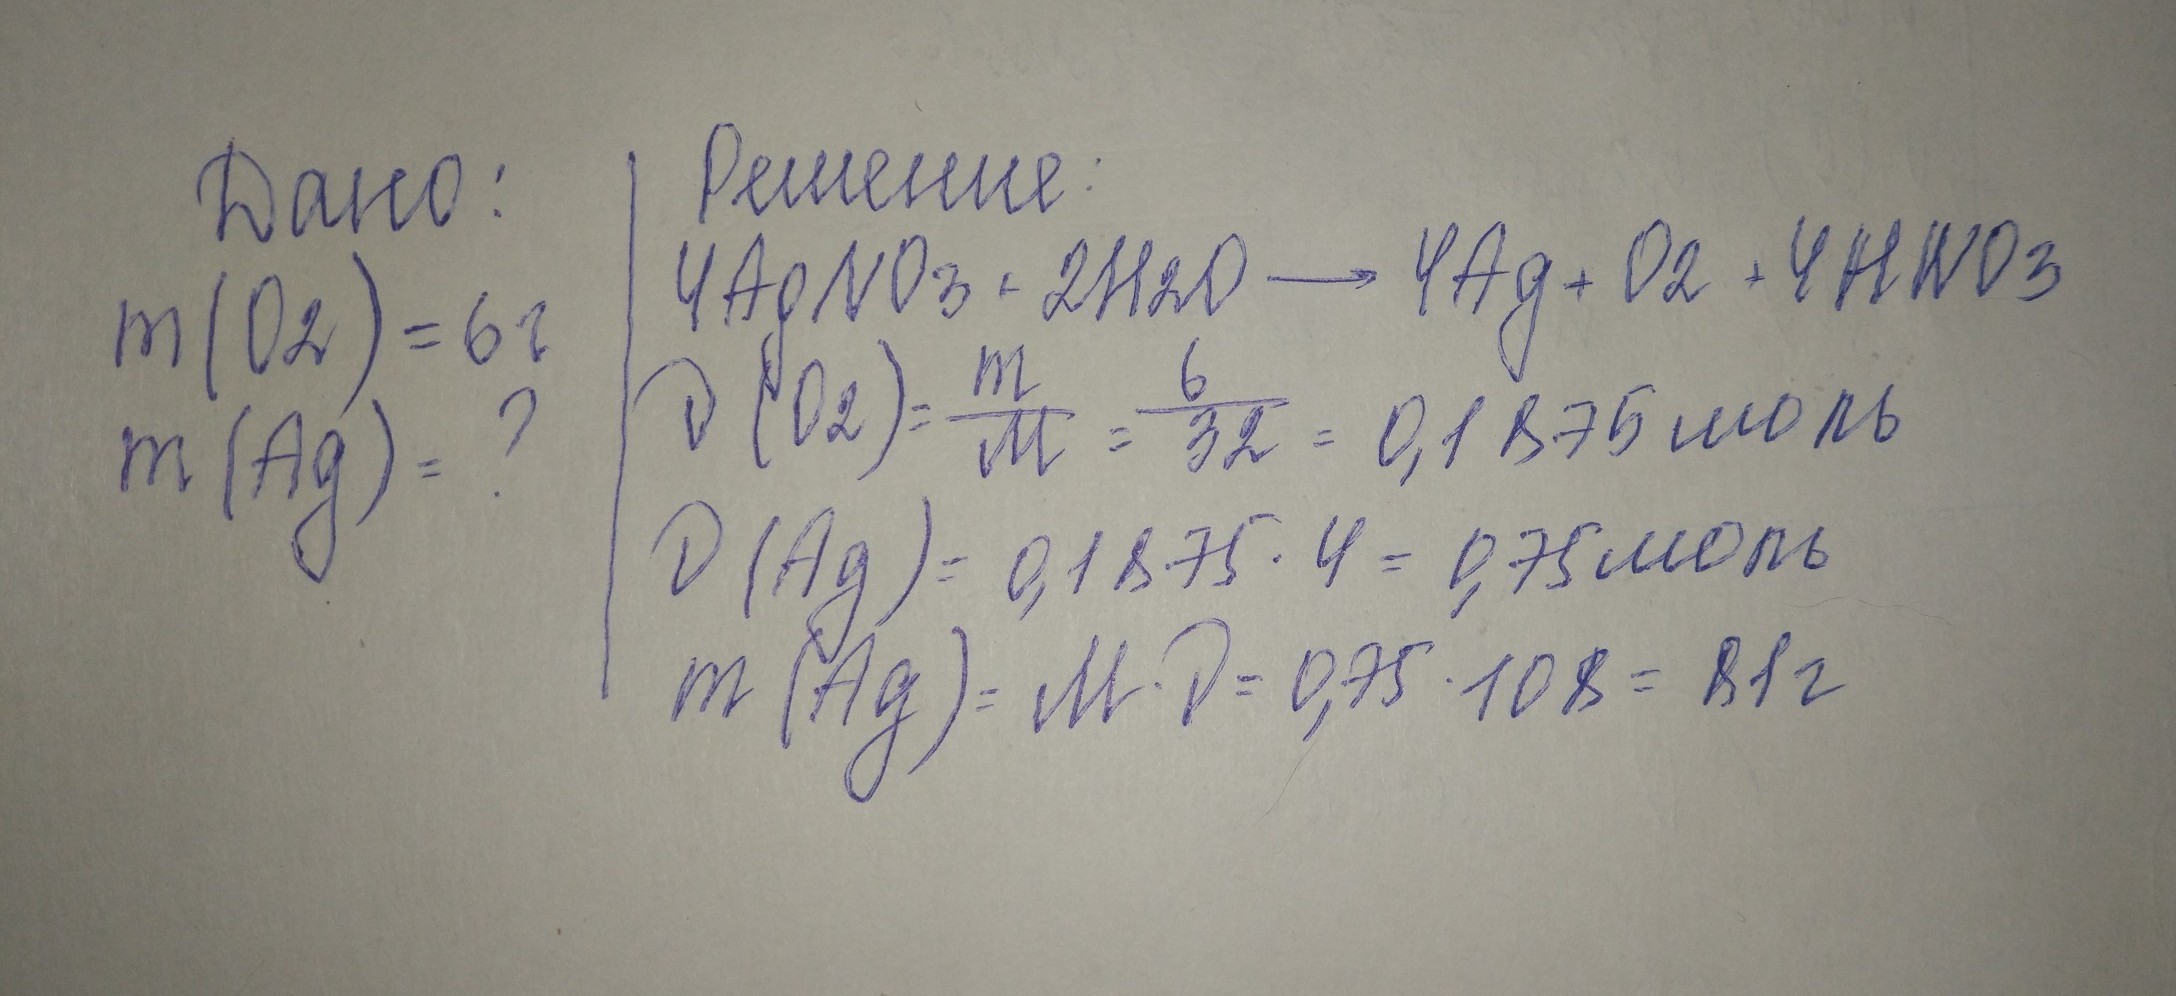 Дано:
m(O2)=6г
m(Ag)=?
Решение:
4AgNO3+2H2O → 4Ag+O2+4HNO3
D(O2)=m/M=6/32=0,1875моль
D(Ag)=0,1875·4=0,75моль
m(Ag)=M·D=0,75·108=81г